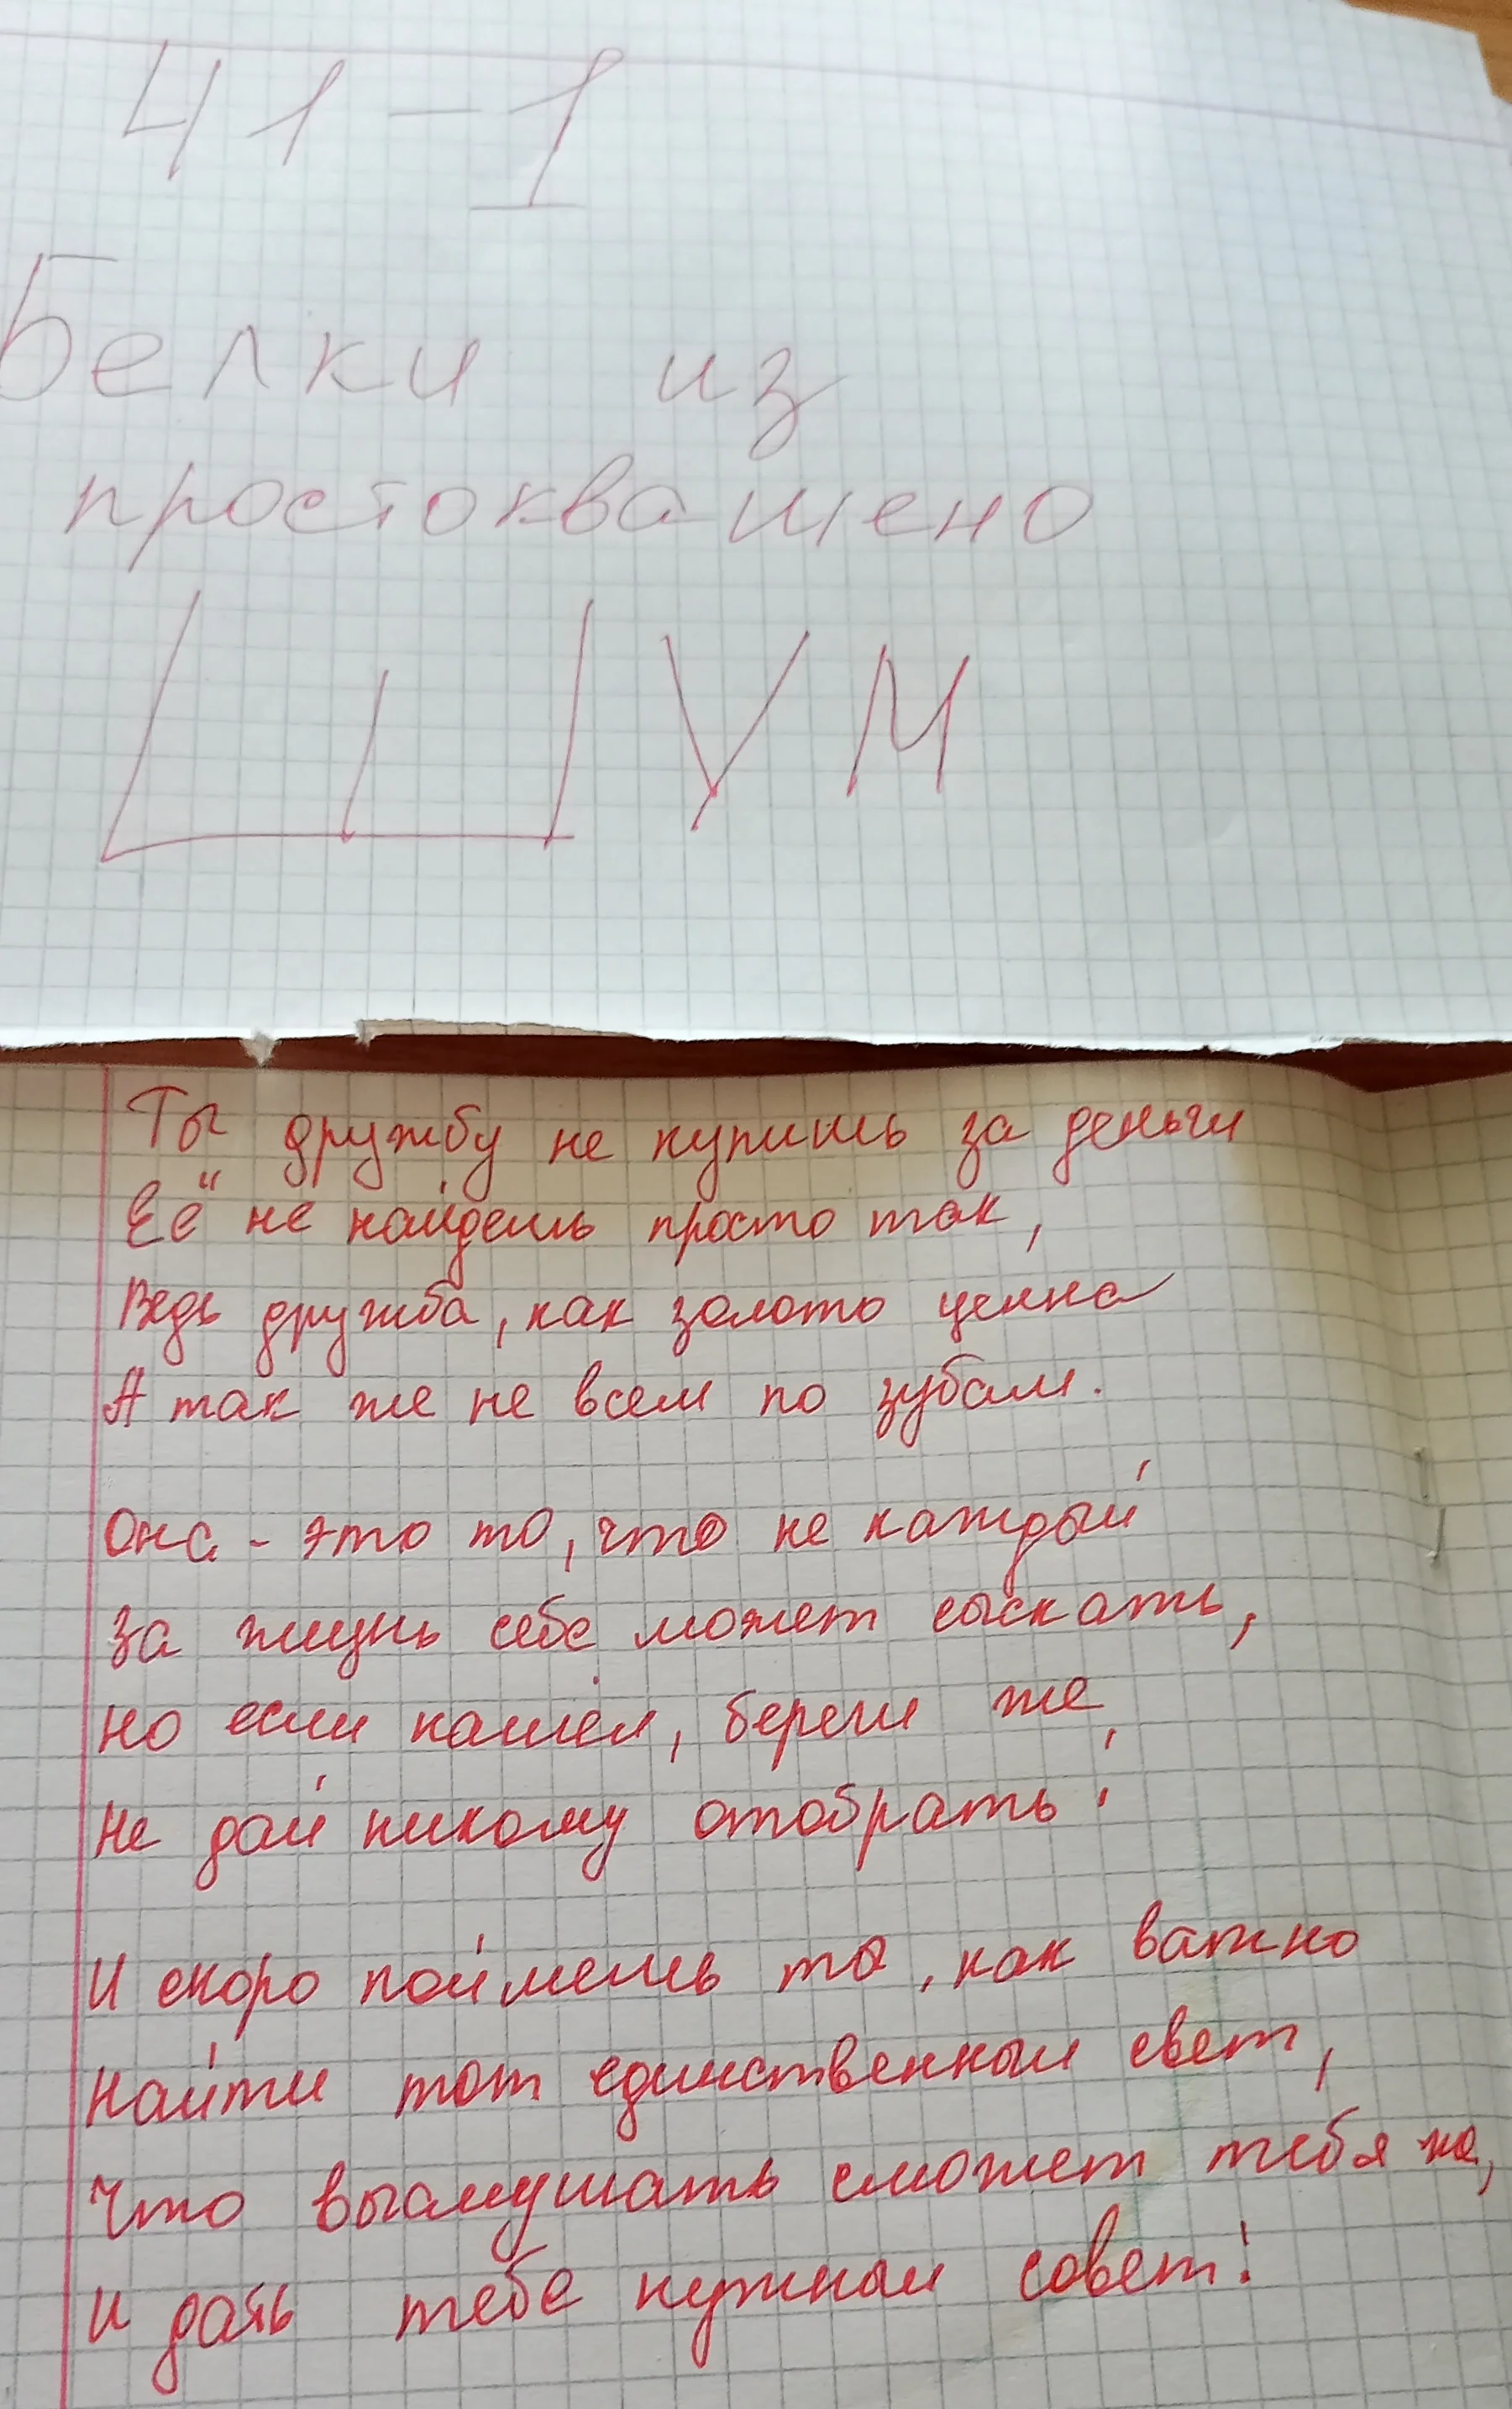 41-1
Белки из
простоквашено
ШУМ
Ты дружбу не купишь за деньги
Её не найдешь просто так,
Ведь дружба, как золото ценна
А так же не всем по зубам.
Она - это то, что не каждый
за жизнь себе может сыскать,
но если нашёл, береги же,
Не дай никому отобрать!
И скоро поймешь то, как важно
Найти тот единственный свет,
Что выслушать сможет тебя
и дать тебе нужный совет!